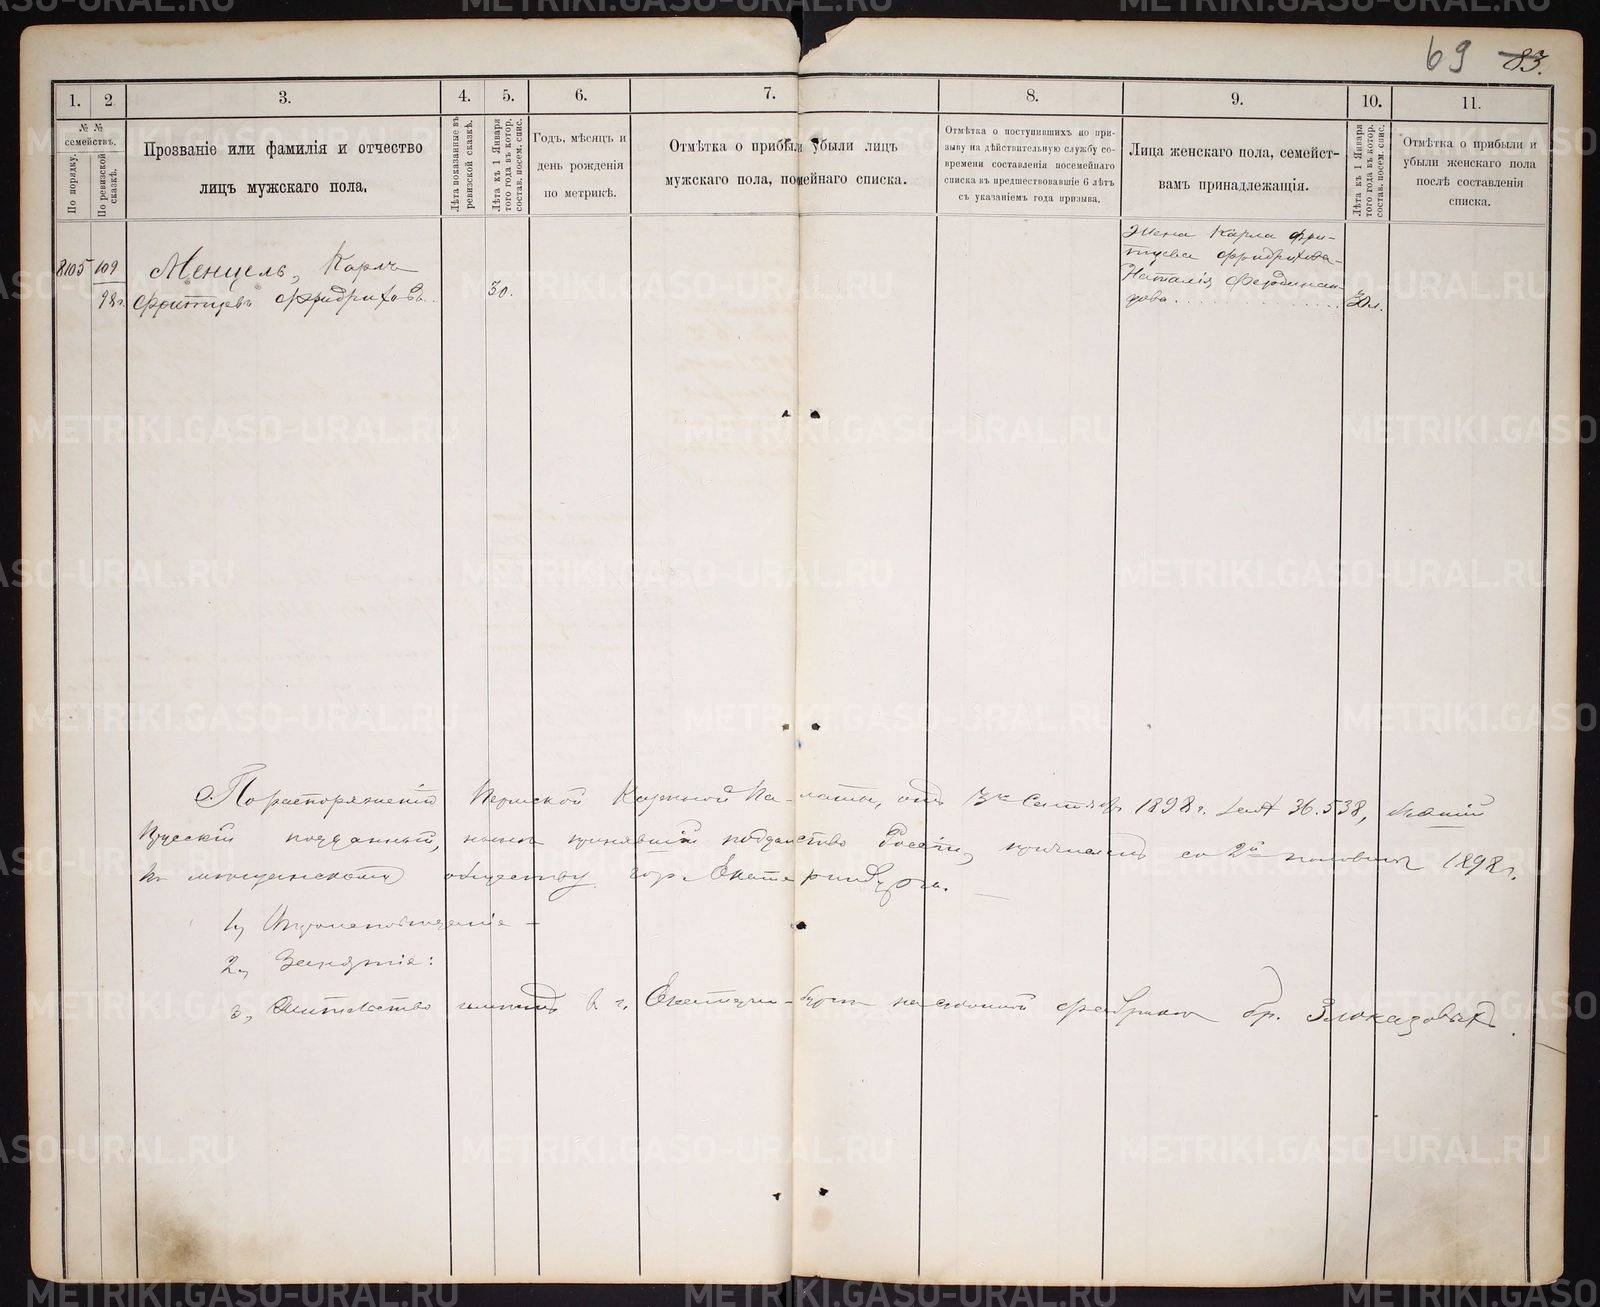 69 83.
1. 2 3. 4. 5. 6. 7. 8. 9. 10. 11.
№ №
семействъ.
По порядку.
По ревизской
сказкѣ.
Прозваніе или фамилія и отчество
лицъ мужскаго пола.
Лѣта показанные въ
ревизской сказкѣ.
Лѣта къ 1 Января
того года въ котор.
состав. посем. спис.
Годъ, мѣсяцъ и
день рожденія
по метрикѣ.
Отмѣтка о прибыли убыли лицъ
мужскаго пола, по мейнаго списка.
Отмѣтка о поступившихъ по при-
зыву на дѣйствительную службу со-
времени составленія посемейнаго
списка въ предшествовавшіе 6 лѣтъ
съ указаніемъ года призыва.
Лица женскаго пола, семейст-
вамъ принадлежащія.
Лѣта къ 1 Января
того года въ котор.
состав. посем. спис.
Отмѣтка о прибыли и
убыли женскаго пола
послѣ составленія
списка.
8105 109
98 г.
Менцель, Карлъ
Фритцевъ Фридриховъ. 30.
Жена Карла Фри-
тцева Фридрихова-
Наталія Фердинан-
дова 30 л.
По распоряженію Пермской Казенной Палаты, отъ 3го Сентября 1898 г. за № 36.538, бывшій
Прусскій подданный, нынѣ принявшій подданство Россіи, причисленъ со 2й половины 1898 г.
къ мѣщанскому обществу гор. Екатеринбурга.
1, Вѣроисповѣданіе -
2, Занятіе:
3, Жительство имѣетъ в г. Екатеринбургѣ на суконной фабрикѣ бр. Злоказовыхъ.
METRIKI.GASO-URAL.RU